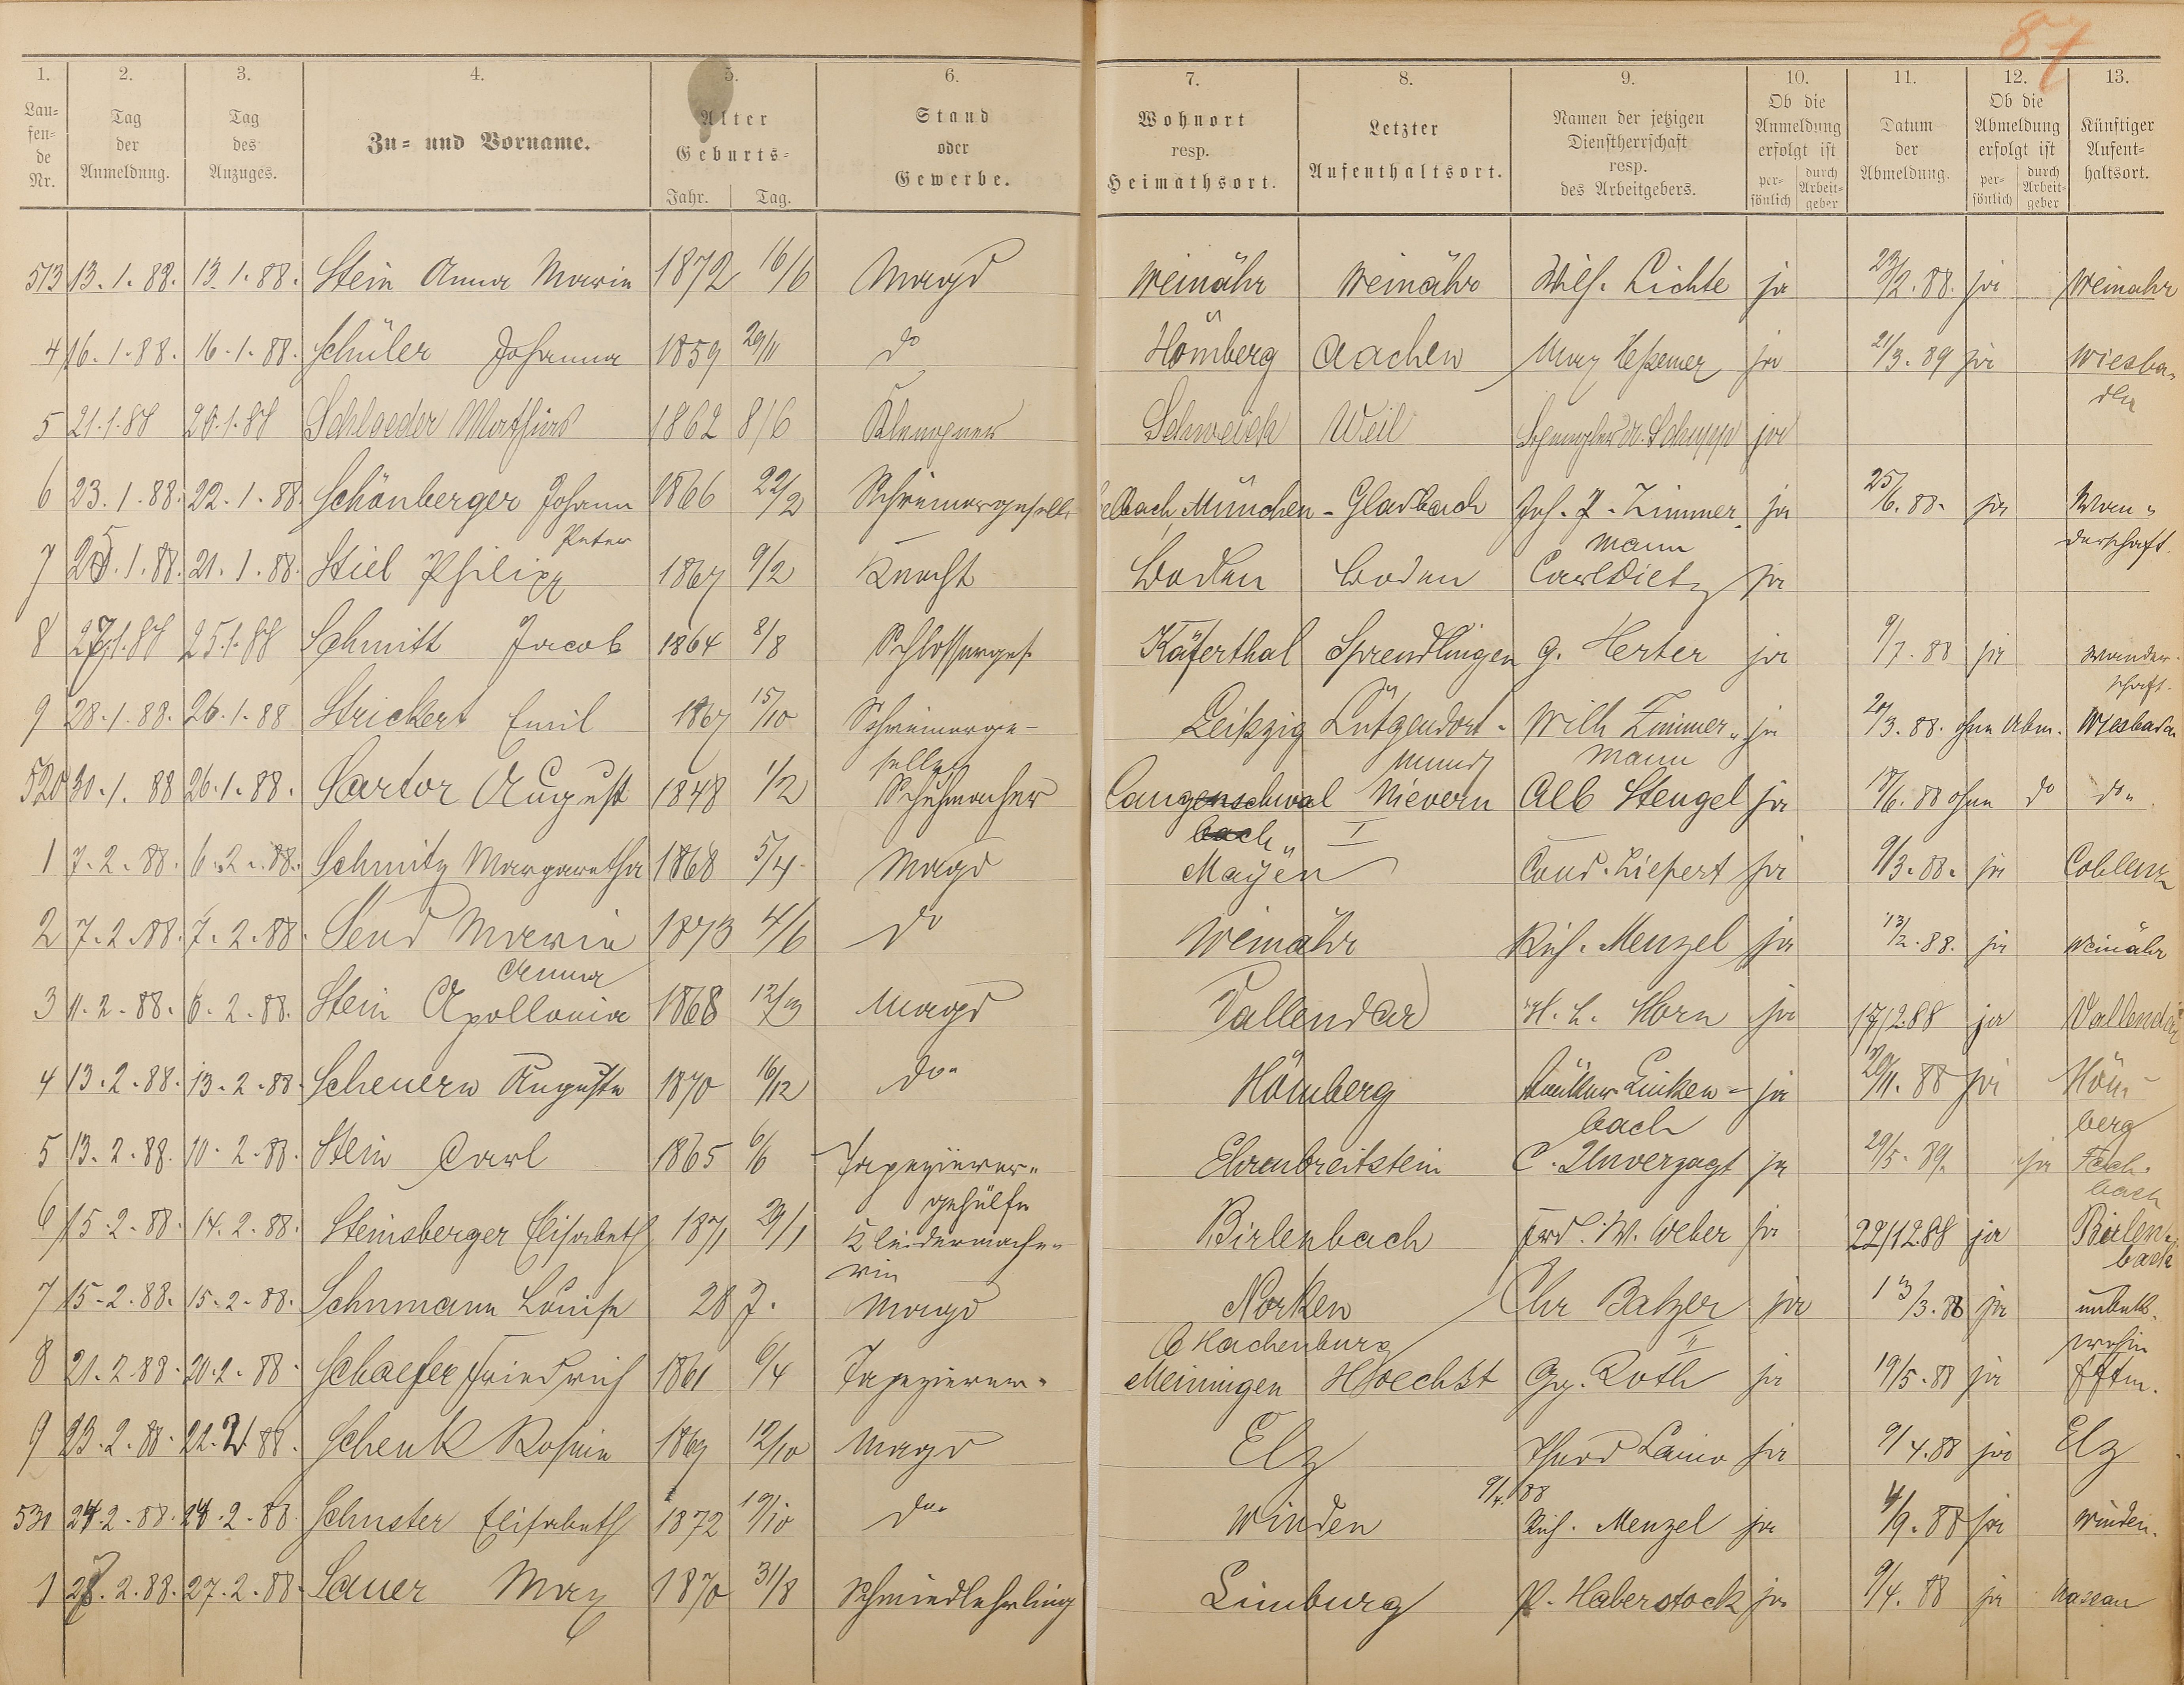 87
1. 2. 3. 4. 5. 6. 7. 8. 9. 10. 11. 12. 13.
Lau-
fen-
de
Nr.
Tag
der
Anmeldung.
Tag
des
Anzuges.
Zu- und Vorname.
Alter
Geburts-
Jahr. Tag.
Stand
oder
Gewerbe.
Wohnort
resp.
Heimathsort.
Letzter
Aufenthaltsort.
Namen der jetzigen
Dienstherrschaft
resp.
des Arbeitgebers.
Ob die
Anmeldung
erfolgt ist
per-
sönlich
durch
Arbeit-
geber
Datum
der
Abmeldung.
Ob die
Abmeldung
erfolgt ist
per-
sönlich
durch
Arbeit-
geber
Künftiger
Aufent-
haltsort.
513 13.1.88. 13.1.88. Stein Anna Maria 1872 16/6 Magd Weinähr Weinähr Wilh. Lichte ja 23/2.88. ja Weinahr
4 16.1.88. 16.1.88. Schüler Johanna 1859 29/11 do Hömberg Aachen Max Heßemer ja 21/3.89 ja Wiesba-
den
5 21.1.88 20.1.88 Schloeder Mathias 1862 8/6 Klempner Schweich Weil Spengler A. Schupp ja
6 23.1.88. 22.1.88 Schönberger Johann 1866 22/2 Schreinergeselle elbach München-Gladbach Joh. P. Zimmer- ja 25/6.88. ja Wan-
Peter mann derschaft.
7 25.1.88. 21.1.88. Stiel Philipp 1867 9/2 Knecht Boden Boden Carl Dietz ja
8 27.1.88 25.1.88 Schmitt Jacob 1864 8/8 Schlosserges. Käferthal Sprendlingen G. Herter ja 9/7.88 ja Wander-
schaft.
9 28.1.88. 26.1.88 Strickert Emil 1867 15/10 Schreinerge- Leipzig Lütgendort- Wilh Zimmer- ja 20/3.88. ohne Abm. Wiesbaden
sellen mund mann
520 30.1.88 26.1.88. Sartor August 1848 1/2 Schuhmacher Langenschwal Nievern Alb Stengel ja 18/6.88 ohne do do.
bach I
1 7.2.88. 6.2.88. Schmitz Margaretha 1868 5/4 Magd Mayen Cond. Liepert ja 9/3.88. ja Coblenz
2 7.2.88. 7.2.88. Send Maria 1873 4/6 do Weinähr Rich. Menzel ja 13/2.88. ja Weinähr
Anna
3 11.2.88. 6.2.88. Stein Apollonia 1868 12/3 Magd Vallendar H. L. Horn ja 17/2 88 ja Vallendar
4 13.2.88. 13.2.88. Scheuern Auguste 1870 16/12 do. Hömberg Linken- ja 20/11.88 ja Höm-
bach berg
5 13.2.88. 10.2.88. Stein Carl 1865 6/6 Tapezierer- Ehrenbreitstein C. Unverzagt ja 29/5.89. ja Fach-
gehülfe bach
6 15.2.88. 14.2.88. Steinsberger Elisabeth 1871 29/1 Kleidermache- Birlenbach Frd. W. Weber ja 22/12 88 ja Birlen-
rin bach
7 15.2.88. 15.2.88. Schumann Louise 28 J. Magd Norken Chr Balzer ja 13/3.88 ja unbek.
b Hachenburg II wohin
8 21.2.88. 20.2.88. Schaefer Friedrich 1861 6/4 Tapezierer. Meiningen Hoechst Gg. Roth ja 19/5.88 ja Fftm.
9 23.2.88. 22.2.88. Schenk Rosina 1869 12/10 Magd Elz Theod Laino ja 9/4.88 ja Elz
9/4.88
530 24.2.88. 24.2.88. Schuster Elisabeth 1872 19/10 do. Winden Rich. Menzel ja 4/9.88 ja Winden.
1 28.2.88. 27.2.88. Sauer Max 1870 31/8 Schmiedlehrling Limburg P. Haberstock ja 9/4.88 ja Nassau